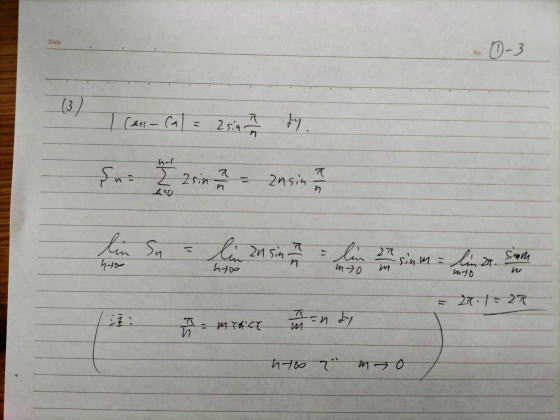 Date
No. ①-3
(3)
|C_{k+1} - C_k| = 2sin π/n より.
S_n = Σ_{k=0}^{n-1} 2sin π/n = 2n sin π/n
lim_{n→∞} S_n = lim_{n→∞} 2n sin π/n = lim_{m→0} 2π/m sin m = lim_{m→0} 2π · sin m/m
= 2π·1 = 2π
(注: π/n = m とおくと π/m = n より
n→∞ で m→0)